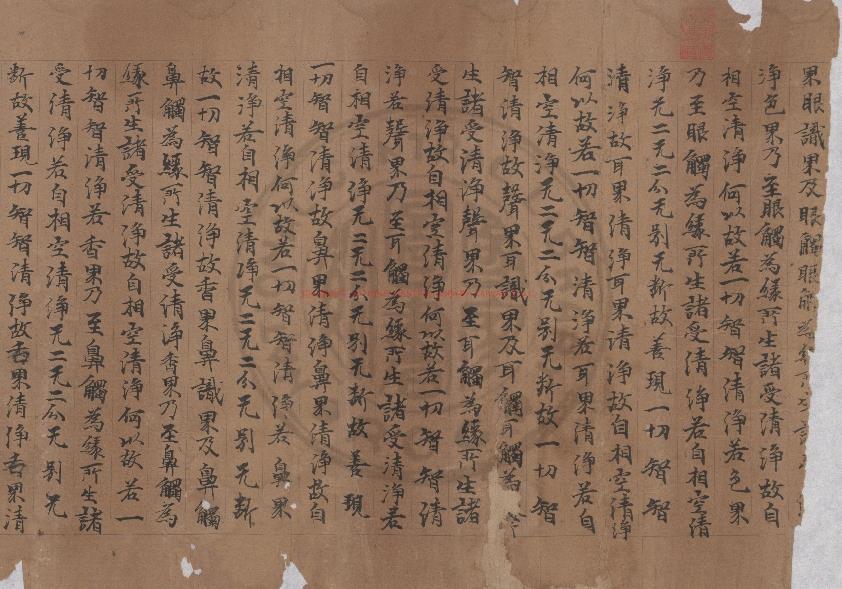 界眼識界及眼觸眼觸為緣所生諸受
淨色界乃至眼觸為緣所生諸受清淨故自
相空清淨何以故若一切智智清淨若色界
乃至眼觸為緣所生諸受清淨若自相空清
淨无二无二分无別无斷故善現一切智智
清淨故耳界清淨耳界清淨故自相空清淨
何以故若一切智智清淨若耳界清淨若自
相空清淨无二无二分无別无斷故一切智
智清淨故聲界耳識界及耳觸耳觸為
生諸受清淨聲界乃至耳觸為緣所生諸
受清淨故自相空清淨何以故若一切智智清
淨若聲界乃至耳觸為緣所生諸受清淨若
自相空清淨无二无二分无別无斷故善現
一切智智清淨故鼻界清淨鼻界清淨故自
相空清淨何以故若一切智智清淨若鼻界
清淨若自相空清淨无二无二分无別无斷
故一切智智清淨故香界鼻識界及鼻觸
鼻觸為緣所生諸受清淨香界乃至鼻觸為
緣所生諸受清淨故自相空清淨何以故若一
切智智清淨若香界乃至鼻觸為緣所生諸
受清淨若自相空清淨无二无二分无別无
斷故善現一切智智清淨故舌界清淨舌界清